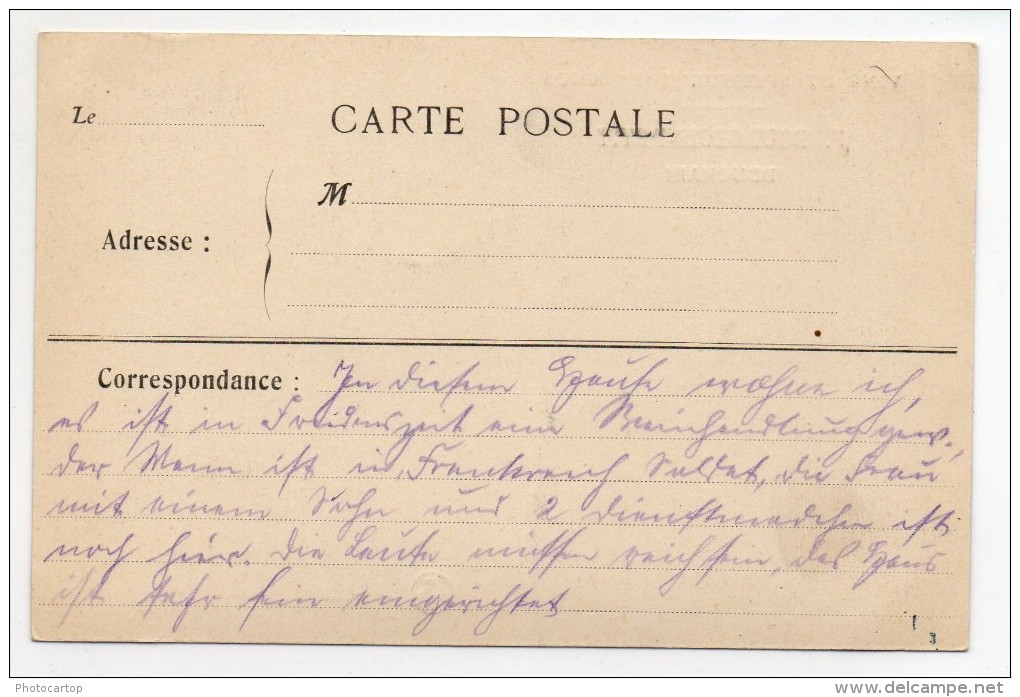 Le
CARTE POSTALE
M
Adresse :
Correspondance : In diesem Hause wohne ich,
es ist in Friedenszeit eine Weinhandlung gew.,
der Mann ist in Frankreich Soldat, die Frau
mit einem Sohn und 2 Dienstmädchen ist
noch hier. Die Leute müssen reich sein, das Haus
ist sehr fein eingerichtet
3
Photocartop
delcampe.net